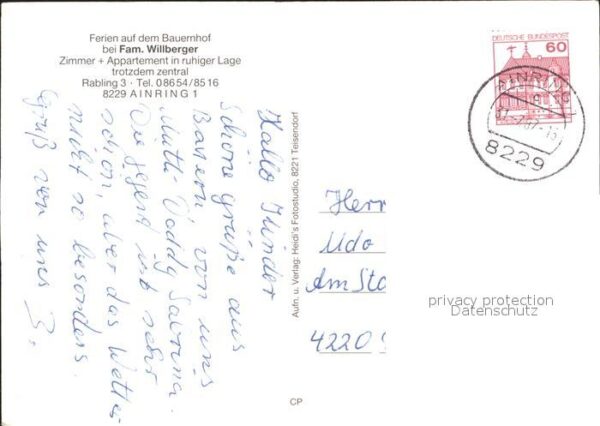 Ferien auf dem Bauernhof
bei Fam. Willberger
Zimmer + Appartement in ruhiger Lage
trotzdem zentral
Rabling 3 · Tel. 08654/8516
8229 AINRING 1
Hallo Kinder
Schöne Grüße aus
Bayern von uns
Mutti Vaddy Sabrina.
Die Gegend ist sehr
schön, aber das Wetter
nicht so besonders.
Gruß von uns 3.
Aufn. u. Verlag: Heidi's Fotostudio, 8221 Teisendorf
CP
DEUTSCHE BUNDESPOST
60
AINRING
8229
Herr
Udo
Am Sta
4220
privacy protection
Datenschutz